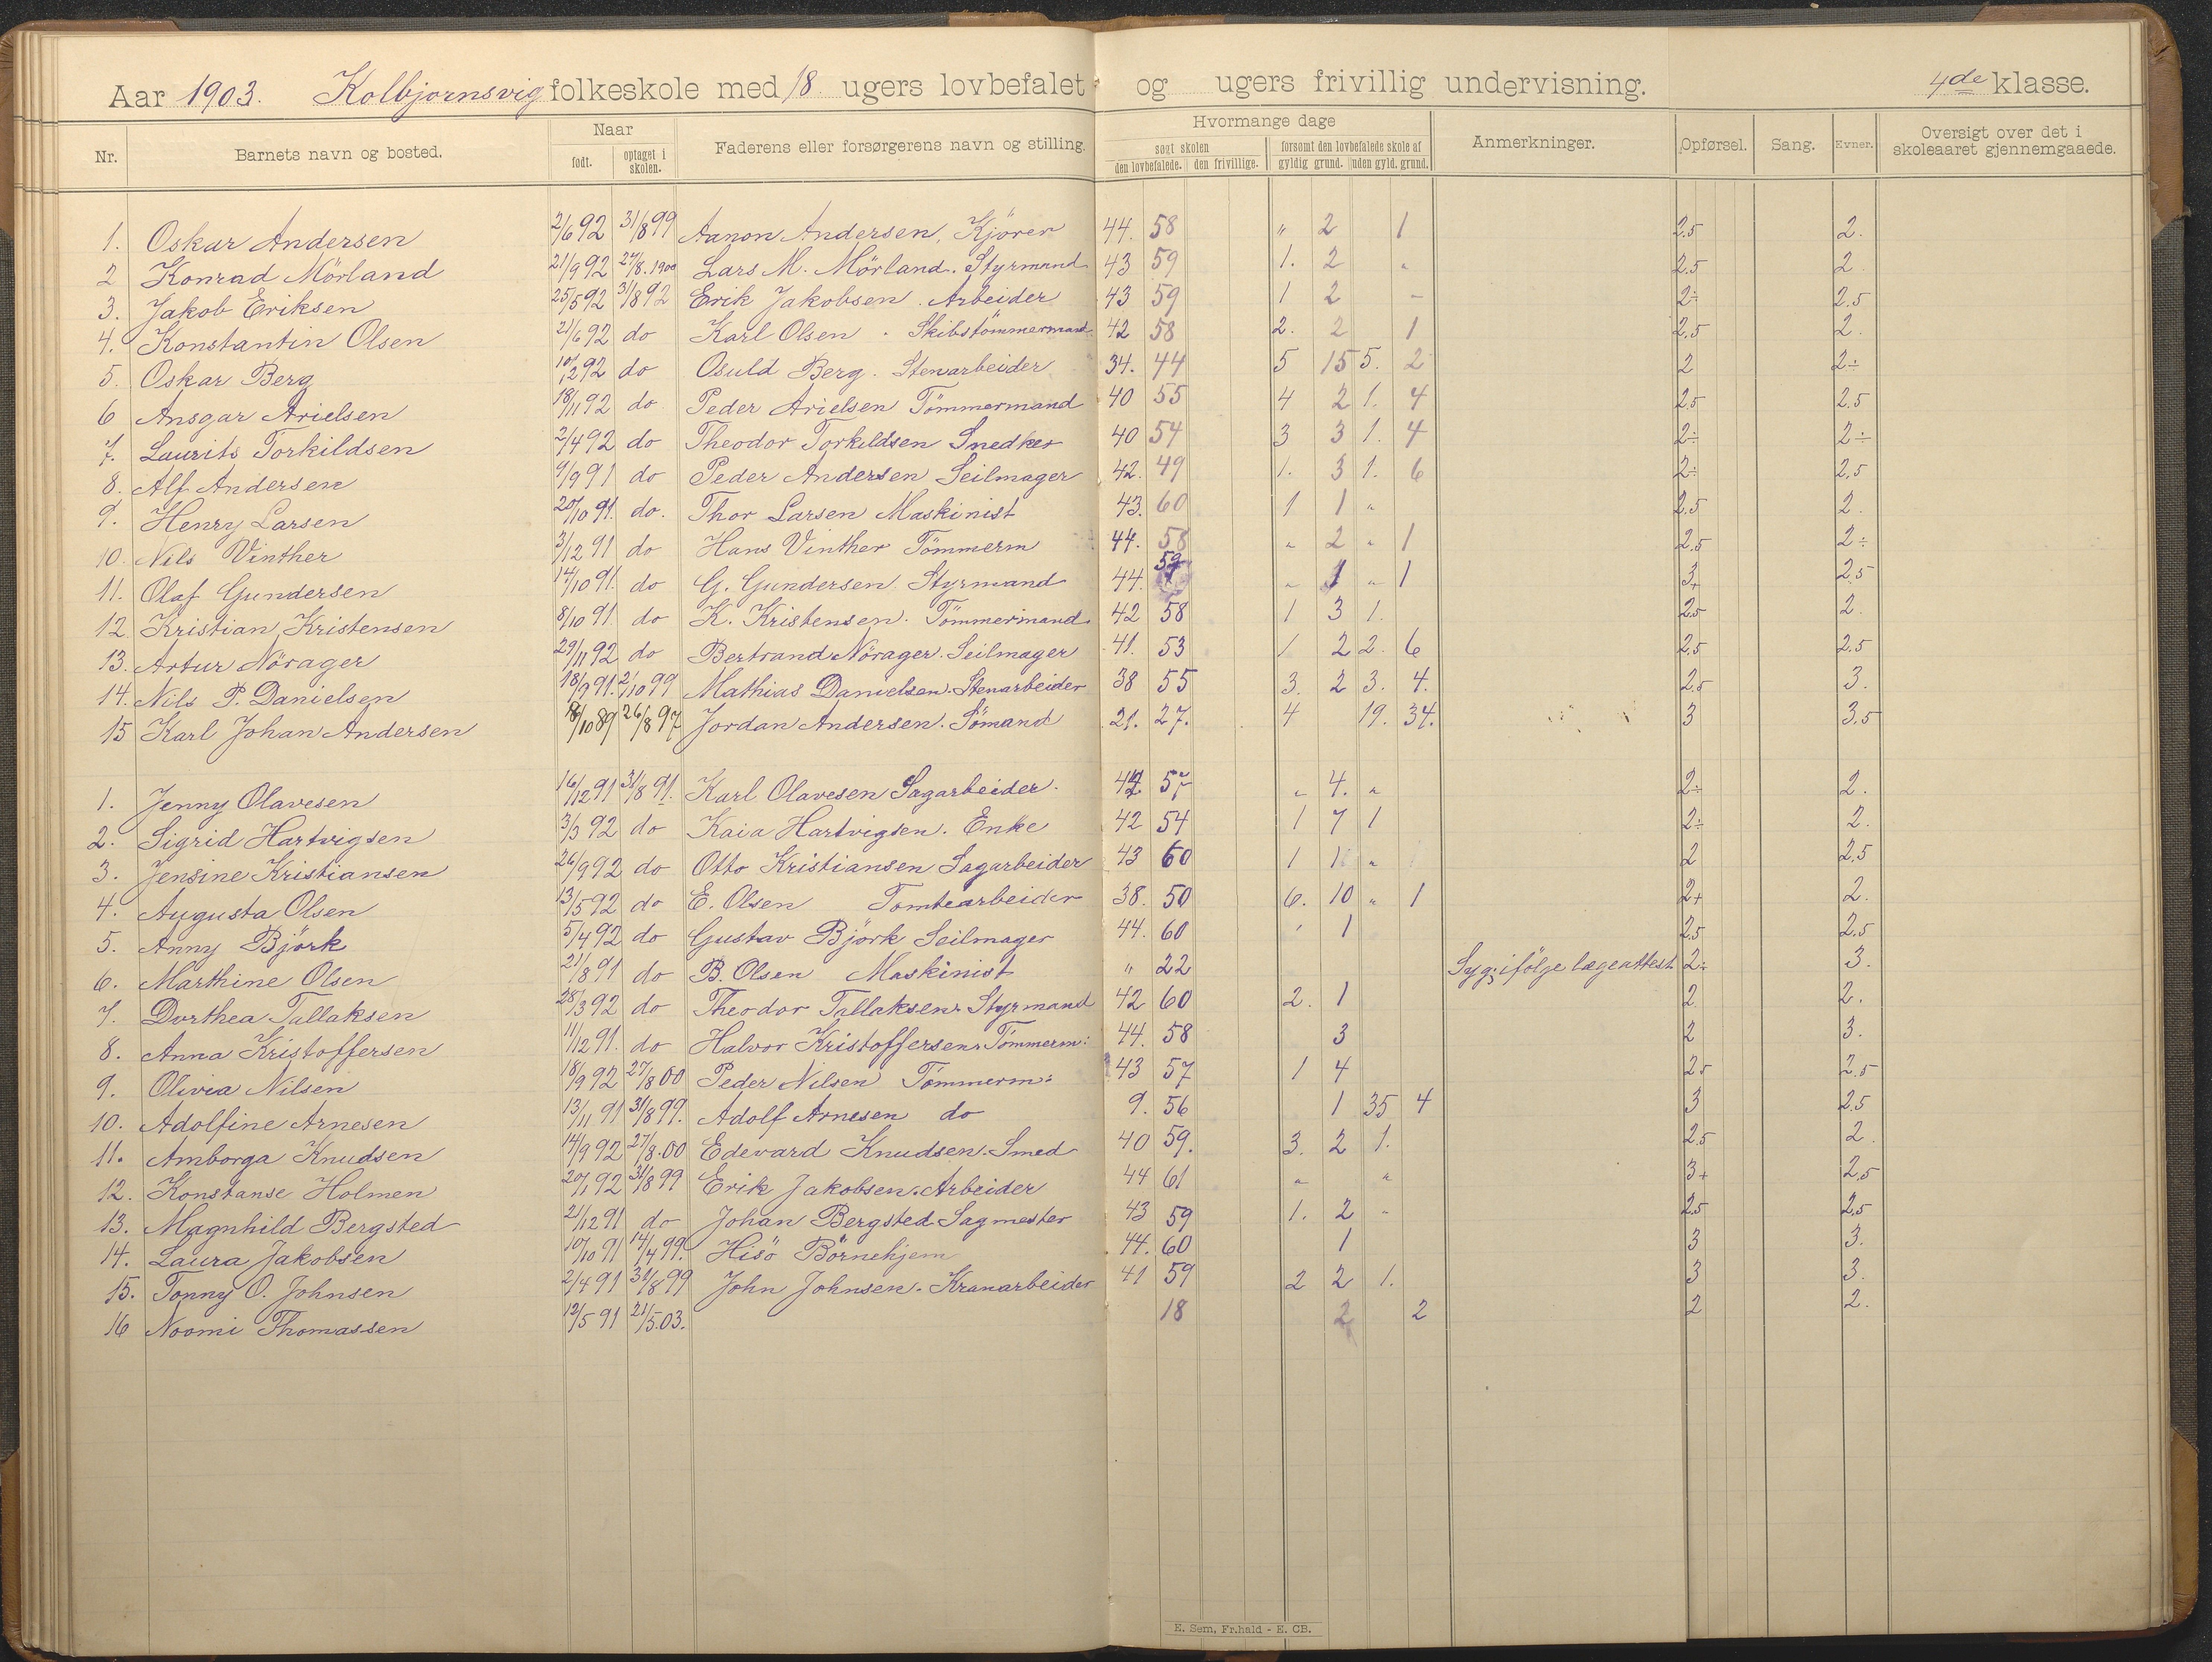 Aar 1903. Kolbjornsvig folkeskole med 18 ugers lovbefalet og ugers frivillig undervisning. 4de klasse.
Nr. Barnets navn og bosted. Naar født. optaget i skolen. Faderens eller forsørgerens navn og stilling. Hvormange dage søgt skolen den lovbefalede. den frivillige. forsømt den lovbefalede skole af gyldig grund. uden gyld. grund. Anmerkninger. Opførsel. Sang. Evner. Oversigt over det i skoleaaret gjennemgaaede.
1. Oskar Andersen 2/6 92 31/8 99 Aanon Andersen, Kjörer 44. 58 " 2 1 2.5 2.
2 Konrad Mörland 21/9 92 27/8. 1900 Lars M. Mörland. Styrmand 43 59 1. 2 " 2.5 2
3. Jakob Eriksen 25/5 92 31/8 92 Erik Jakobsen. Arbeider 43 59 1 2 - 2÷ 2.5
4. Konstantin Olsen 21/6 92 do Karl Olsen. Skibstömmermand 42 58 2. 2 1 2.5 2.
5. Oskar Berg 10/12 92 do Osuld Berg. Stenarbeider 34. 44 5 15 5. 2 2 2÷
6 Ansgar Arielsen 18/11 92 do Peder Arielsen Tömmermand 40 55 4 2 1. 4 2.5 2.5
7. Laurits Torkildsen 2/4 92 do Theodor Torkildsen Snedker 40 54 3 3 1. 4 2÷ 2÷
8. Alf Andersen 9/9 91 do Peder Andersen Seilmager 42. 49 1. 3 1. 6 2÷ 2.5
9. Henry Larsen 20/10 91. do. Thor Larsen Maskinist 43. 60 1 1 " 2.5 2.
10. Nils Vinther 3/12 91 do Hans Vinther Tömmerm 44. 58 " 2 " 1 2.5 2÷
11. Olaf Gundersen 14/10 91. do G. Gundersen Styrmand 44. 59 " 1 " 1 3+ 2.5
12 Kristian Kristensen 8/10 91. do K. Kristensen. Tömmermand. 42 58 1 3 1. 2.5 2.
13. Artur Nörager 29/11 92 do Bertrand Nörager. Seilmager 41. 53 1 2 2. 6 2.5 2.5
14. Nils P. Danielsen 18/9 91. 2/10 99 Mathias Danielsen. Stenarbeider 38 55 3. 2 3. 4. 2.5 3.
15 Karl Johan Andersen 18/10 89 26/8 97 Jordan Andersen. Sömand 21. 27. 4 19. 34. 3 3.5
1. Jenny Olavesen 16/12 91 31/8 91. Karl Olavesen Sagarbeider. 57 " 4. " 2÷ 2.
2. Sigrid Hartvigsen 3/3 92 do Kaia Hartvigsen. Enke 42 54 1 7 1 2÷ 2.
3. Jensine Kristiansen 26/9 92 do Otto Kristiansen Sagarbeider 43 60 1 1 " 2 2.5
4. Augusta Olsen 13/5 92 do E. Olsen Tomtearbeider 38. 50 6. 10 " 1 2+ 2.
5. Anny Björk 5/4 92 do Gustav Björk Seilmager 44. 60 " 1 2.5 2.5
6. Marthine Olsen 21/8 91 do B. Olsen Maskinist " 22 Syg; ifölge lægeattest 2÷ 3.
7. Dorthea Tallaksen 28/3 92 do Theodor Tallaksen. Styrmand 42 60 2. 1 2 2.
8. Anna Kristoffersen 11/12 91. do Halvor Kristoffersen. Tömmerm: 44. 58 3 2 3.
9. Olivia Nilsen 18/9 92 27/8 00 Peder Nilsen Tömmerm: 43 57 1 4 2.5 2.5
10. Adolfine Arnesen 13/11 91 31/8 99. Adolf Arnesen do 9. 56 1 35 4 3 2.5
11. Amborga Knudsen 14/9 92 27/8.00 Edevard Knudsen. Smed 40 59. 3. 2 1. 2.5 2.
12. Konstanse Holmen 20/1 92 31/8 99 Erik Jakobsen. Arbeider 44 61 " " 3+ 2.5
13. Magnhild Bergsted 21/12 91 do Johan Bergsted Sagmester 43 59 1. 2 " 2.5 2.5
14. Laura Jakobsen 10/10 91 14/4 99. Hisö Börnehjem 44. 60 1 3 3.
15. Tonny O. Johnsen 2/4 91 31/8 99 John Johnsen. Kranarbeider 41 59 2 2 1. 3 3.
16 Noomi Thomassen 12/5 91 21/5.03. 18 2 2 2 2.
E. Sem, Fr.hald - E. CB.